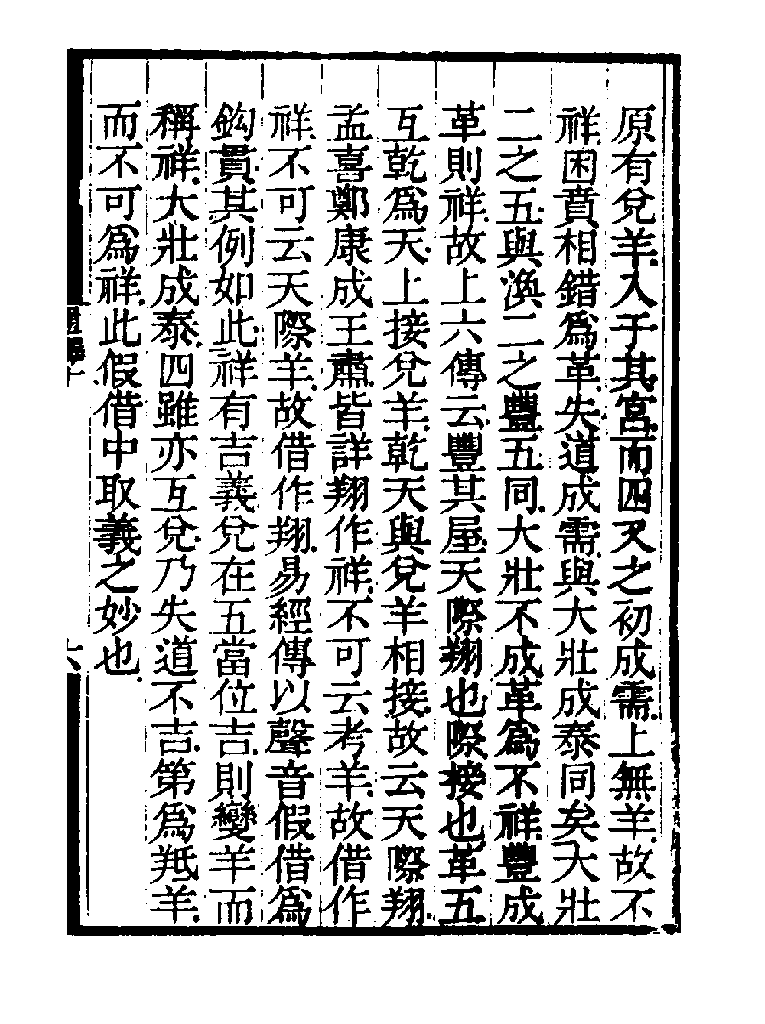 原有兌羊入于其宮而四又之初成需上無羊故不
祥困賁相錯爲革失道成需與大壯成泰同矣大壯
二之五與渙二之豐五同大壯不成革爲不祥豐成
革則祥故上六傳云豐其屋天際翔也際接也革五
互乾爲天上接兌羊乾天與兌羊相接故云天際翔
孟喜鄭康成王肅皆詳翔作祥不可云考羊故借作
祥不可云天際羊故借作翔易經傳以聲音假借爲
鈎貫其例如此祥有吉義兌在五當位吉則變羊而
稱祥大壯成泰四雖亦互兌乃失道不吉第爲羝羊
而不可爲祥此假借中取義之妙也
六